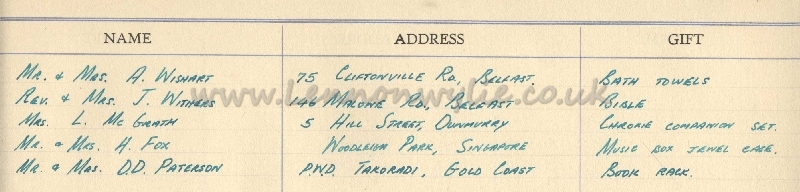 NAME ADDRESS GIFT
Mr. & Mrs. A. Wishart 75 Cliftonville Rd, Belfast. Bath Towels
Rev. & Mrs. J. Withers 146 Malone Rd, Belfast Bible
Mrs. L. McGrath 5 Hill Street, Dunmurry Chrome companion set.
Mr. & Mrs. H. Fox Woodleigh Park, Singapore Music box jewel case.
Mr. & Mrs. D.D. Paterson P.W.D. Takoradi, Gold Coast Book rack.
www.lennonwylie.co.uk